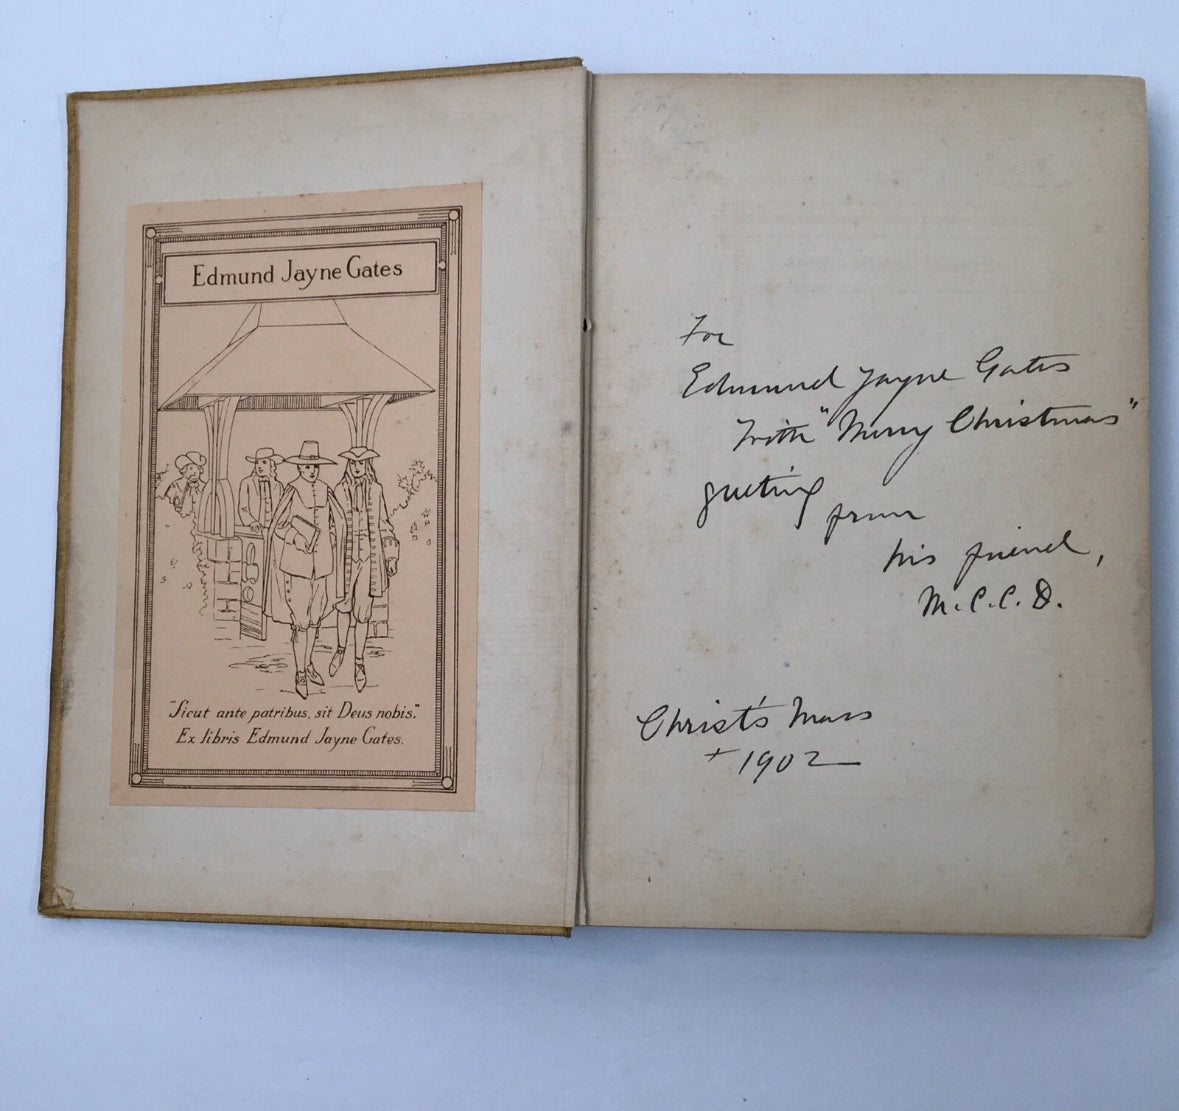 Edmund Jayne Gates
"Sicut ante patribus, sit Deus nobis."
Ex libris Edmund Jayne Gates.
For
Edmund Jayne Gates
With "Merry Christmas"
greeting
from
his friend,
M.C.C.D.
Christ's Mass
+ 1902